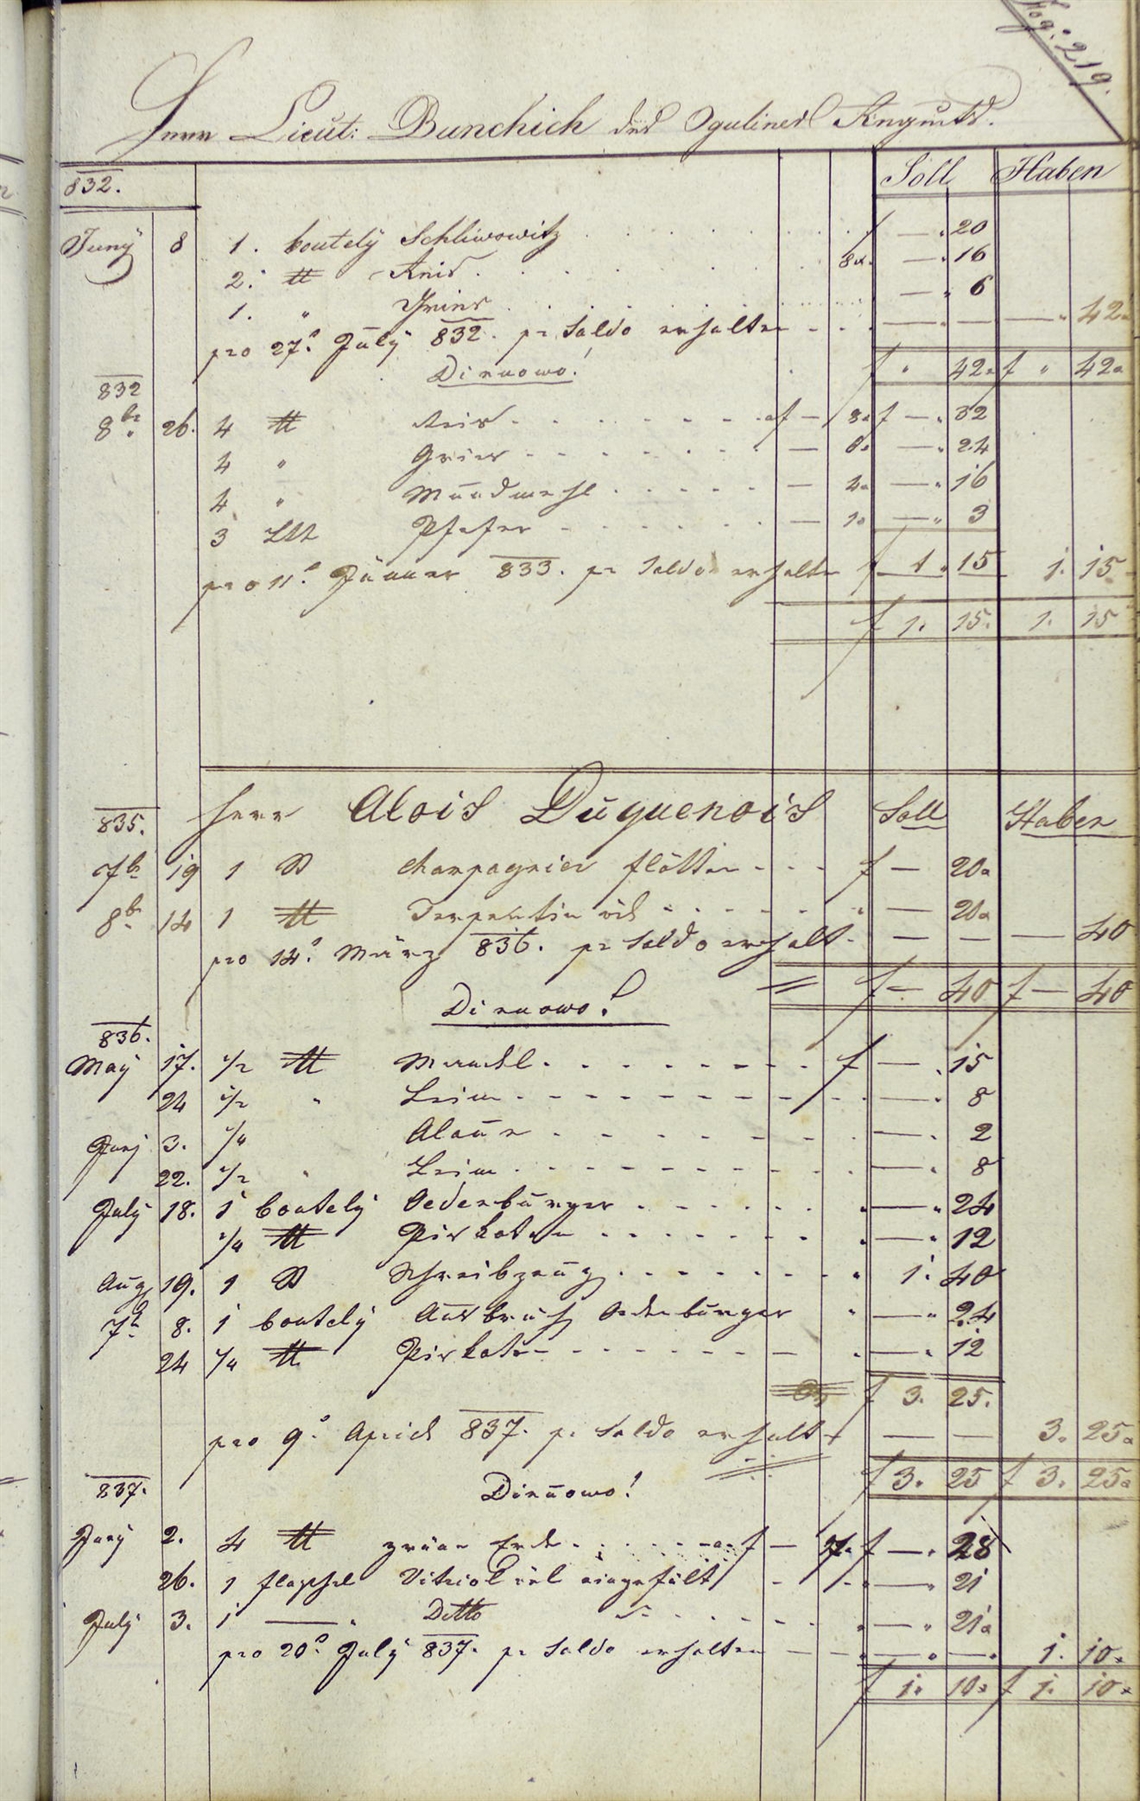 Fog: 219.
Herrn Lieut: Bunchich des Oguliner Regmts.
832. Soll Haben
Juny 8 1. boutely Schliwowitz f — 20
2. ℔ Reis 8x. — 16
1. " Gries — 6
pro 27. July 832. pr Saldo erhalten — — — 42x
f " 42x f " 42x
Dinuovo!
832
8br 26. 4 ℔ Reis f — 8x f — 32
4 " Gries — 6x — 24
4 " Mundmehl — 4x — 16
3 Lth Pfefer — 1x — 3
pro 11. Jänner 833. pr Saldo erhalten f 1. 15 1. 15
f 1. 15. 1. 15
835. Herr Alois Duquenois Soll Haben
7br 19 1 St Champagner flötten f — 20x
8br 14 1 ℔ Terpentin öel — 20x
pro 14. März 836. pr Saldo erhalt. — — — 40
f — 40 f — 40
Dinuovo!
836.
May 17. 1/2 ℔ Mandel f — 15
24 1/2 " Leim — 8
Juny 3. 1/4 Alaun — 2
22. 1/2 " Leim — 8
July 18. 1 boutely Oedenburger — 24
1/4 ℔ Piskoten — 12
Aug 19. 1 St Schreibzeug 1. 40
7br 8. 1 boutely Ausbruch Oedenburger — 24
24 1/4 ℔ Piskoten — 12
f 3. 25.
pro 9. April 837. pr Saldo erhalt — — 3. 25x
f 3. 25 f 3. 25x
837. Dinuovo!
Juny 2. 4 ℔ grüne Erde f — 7x f — 28
26. 1 flaschel Vitriol öel eingefült — 21
July 3. 1 — Ditto — 21x
pro 20. July 837. pr Saldo erhalten — — 1. 10x
f 1. 10x f 1. 10x